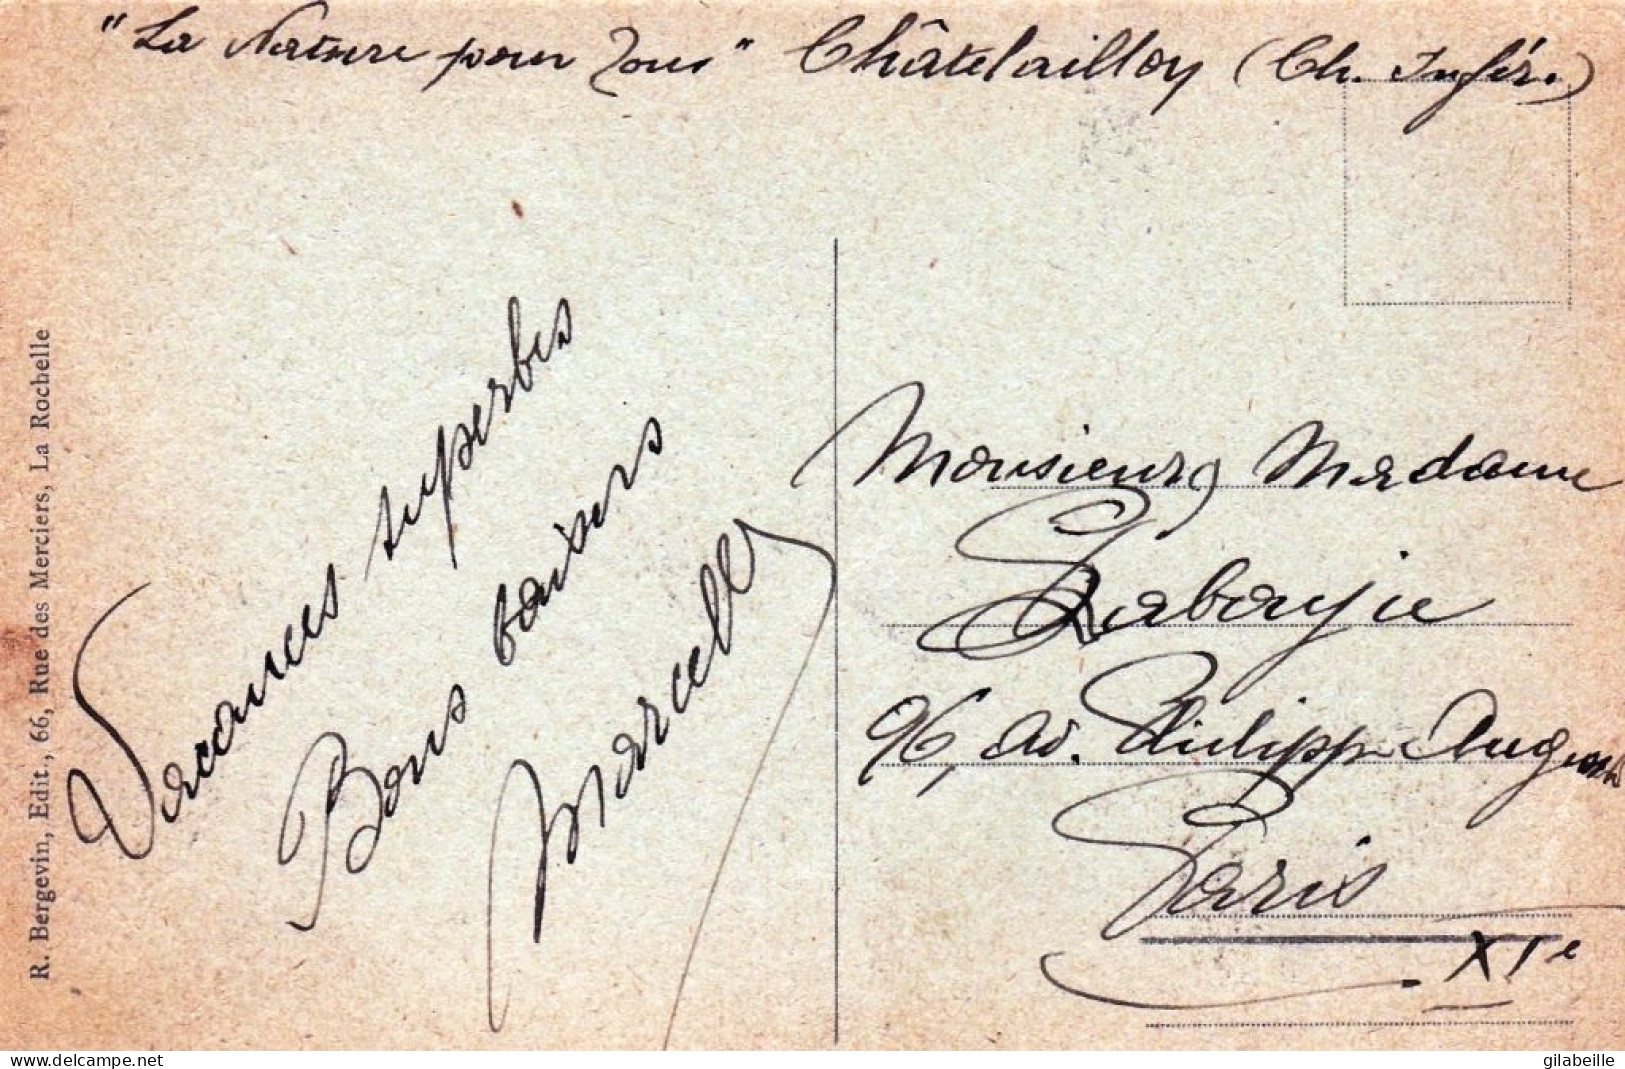 "La Nature pour Tous" Châtelaillon (Ch. Infér.)
Vacances superbes
Bons baisers
Marcelle
Monsieur, Madame
Labayie
96, Av. Philippe Auguste
Paris
XIe
R. Bergevin, Edit., 66, Rue des Merciers, La Rochelle
delcampe.net
gilabeille